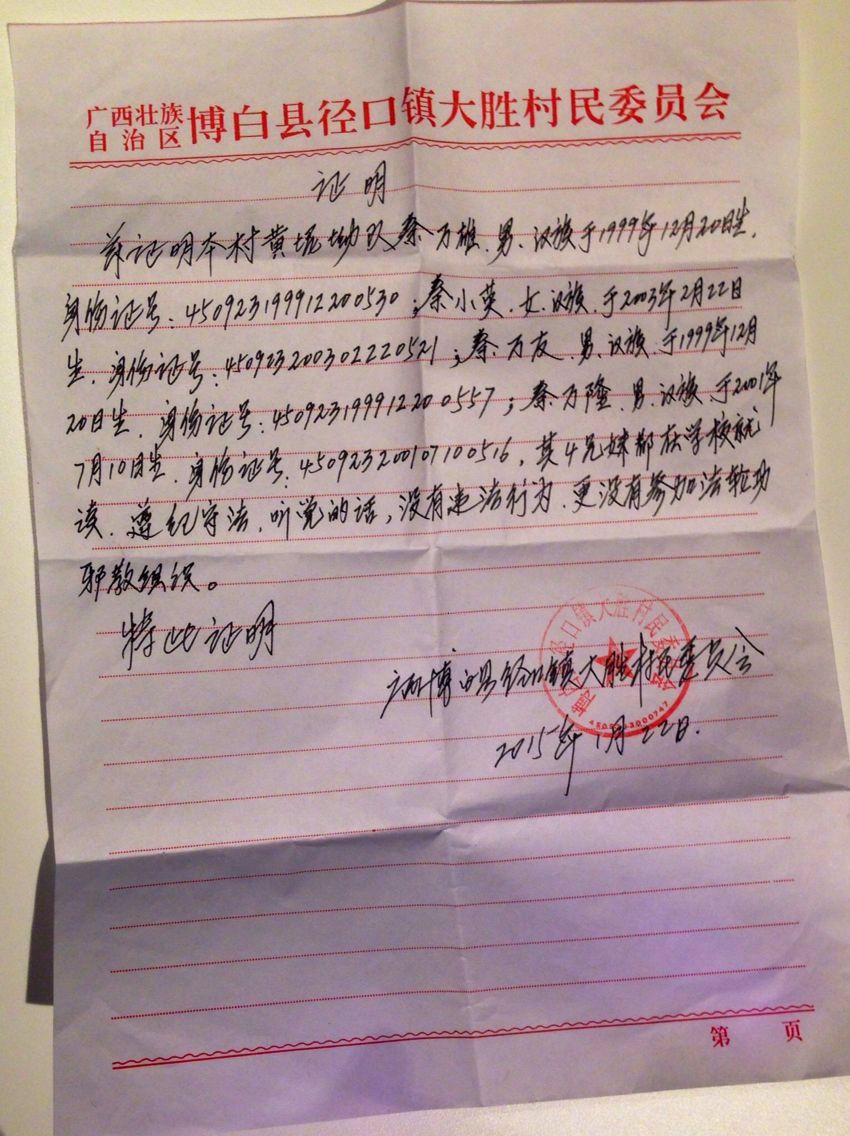 广西壮族
自治区
博白县径口镇大胜村民委员会
证明
兹证明本村黄坭坳队秦万雄、男、汉族于1999年12月20日生，
身份证号：450923199912200530；秦小英、女、汉族、于2003年2月22日
生、身份证号：450923200302220521；秦万友、男、汉族、于1999年12月
20日生、身份证号：450923199912200557；秦万隆、男、汉族、于2001年
7月10日生、身份证号：450923200107100516，其4兄妹都在学校就
读、遵纪守法、听党的话，没有违法行为、更没有参加法轮功
邪教组织。
特此证明
广西博白县径口镇大胜村民委员会
2015年1月22日.
第 页